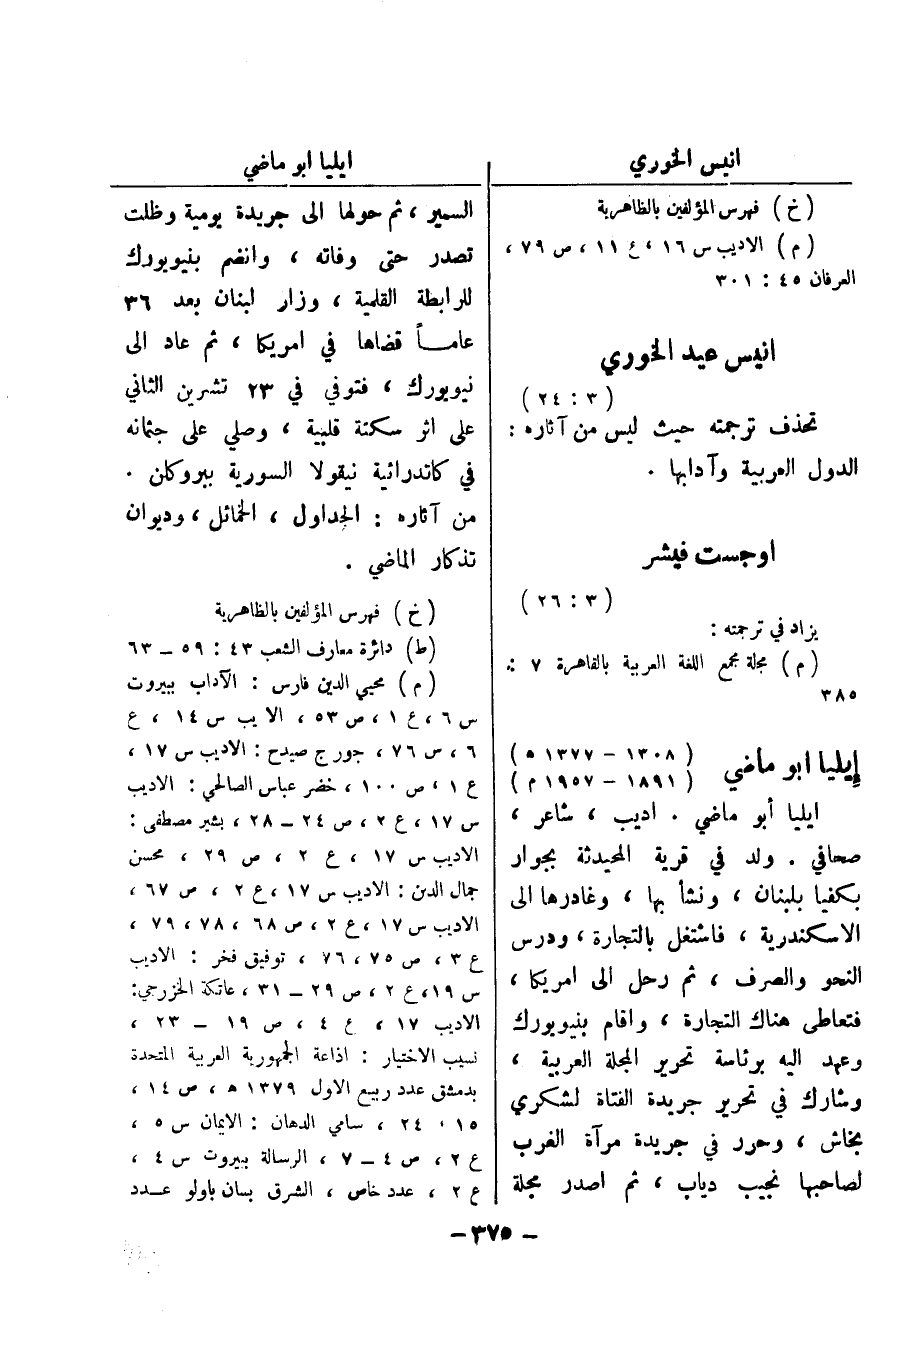 انيس الخوري
(خ) فهرس المؤلفين بالظاهرية
(م) الاديب س ١٦ ، ع ١١ ، ص ٧٩ ،
العرفان ٤٥ : ٣٠١
انيس عيد الخوري
(٣ : ٢٤)
تحذف ترجمته حيث ليس من آثاره :
الدول العربية وآدابها .
اوجست فيشر
(٣ : ٢٦)
يزاد في ترجمته :
(م) مجلة مجمع اللغة العربية بالقاهرة ٧ :
٣٨٥
إيليا ابو ماضي (١٣٠٨ – ١٣٧٧ ه)
(١٨٩١ – ١٩٥٧ م)
ايليا أبو ماضي . اديب ، شاعر ،
صحافي . ولد في قرية المحيدثة بجوار
بكفيا بلبنان ، ونشأ بها ، وغادرها الى
الاسكندرية ، فاشتغل بالتجارة ، ودرس
النحو والصرف ، ثم رحل الى امريكا ،
فتعاطى هناك التجارة ، واقام بنيويورك
وعهد اليه برئاسة تحرير المجلة العربية ،
وشارك في تحرير جريدة الفتاة لشكري
بخاش ، وحرر في جريدة مرآة الغرب
لصاحبها نجيب دياب ، ثم اصدر مجلة
ايليا ابو ماضي
السمير ، ثم حولها الى جريدة يومية وظلت
تصدر حتى وفاته ، وانضم بنيويورك
للرابطة القلمية ، وزار لبنان بعد ٣٦
عاماً قضاها في امريكا ، ثم عاد الى
نيويورك ، فتوفي في ٢٣ تشرين الثاني
على اثر سكتة قلبية ، وصلي على جثمانه
في كاتدرائية نيقولا السورية ببروكلن .
من آثاره : الجداول ، الخمائل ، وديوان
تذكار الماضي .
(خ) فهرس المؤلفين بالظاهرية
(ط) دائرة معارف الشعب ٤٣ : ٥٩ – ٦٣
(م) محيي الدين فارس : الآداب ببيروت
س ٦ ، ع ١ ، ص ٥٣ ، الايب س ١٤ ، ع
٦ ، س ٧٦ ، جورج صيدح : الاديب س ١٧ ،
ع ١ ، ص ١٠٠ ، خضر عباس الصالحي : الاديب
س ١٧ ، ع ٢ ، ص ٢٤ – ٢٨ ، بشير مصطفى :
الاديب س ١٧ ، ع ٢ ، ص ٢٩ ، محسن
جمال الدين : الاديب س ١٧ ، ع ٢ ، ص ٦٧ ،
الاديب س ١٧ ، ع ٢ ، ص ٦٨ ، ٧٨ ، ٧٩ ،
ع ٣ ، ص ٧٥ ، ٧٦ ، توفيق فخر : الاديب
س ١٩ ، ع ٢ ، ص ٢٩ – ٣١ ، عاتكة الخزرجي :
الاديب ١٧ ، ع ٤ ، ص ١٩ – ٢٣ ،
نسيب الاختيار : اذاعة الجمهورية العربية المتحدة
بدمشق عدد ربيع الاول ١٣٧٩ ه ، ص ١٤ ،
١٥ ، ٢٤ ، سامي الدهان : الايمان س ٥ ،
ع ٢ ، ص ٤ – ٧ ، الرسالة ببيروت س ٤ ،
ع ٢ ، عدد خاص ، الشرق بسان باولو عدد
– ٣٧٥ –